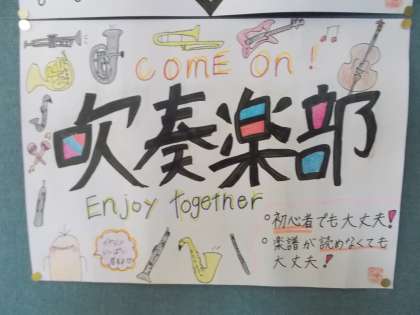 COME ON!
吹奏楽部
Enjoy together
○初心者でも大丈夫!
○楽譜が読めなくても
大丈夫!